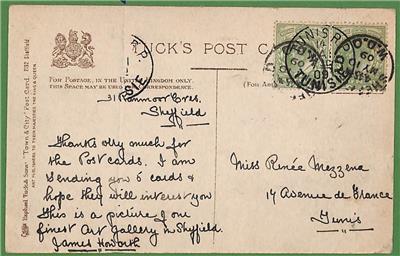 TUCK'S POST CARD
FOR POSTAGE, IN THE UNITED KINGDOM ONLY.
THIS SPACE MAY BE USED
31 Ranmoor Cres.
Sheffield
Thanks olly much for
the Post cards. I am
sending you 6 cards &
hope they will interest you
This is a picture of one
finest Art gallery in Sheffield
James Howorth
Miss Renée Mezzena
17 Avenue de France
Tunis
Raphael Tuck & Sons' "Town & City" Post Card
Sheffield
ART PUBLISHERS TO THEIR MAJESTIES THE KING & QUEEN
TUNIS
09